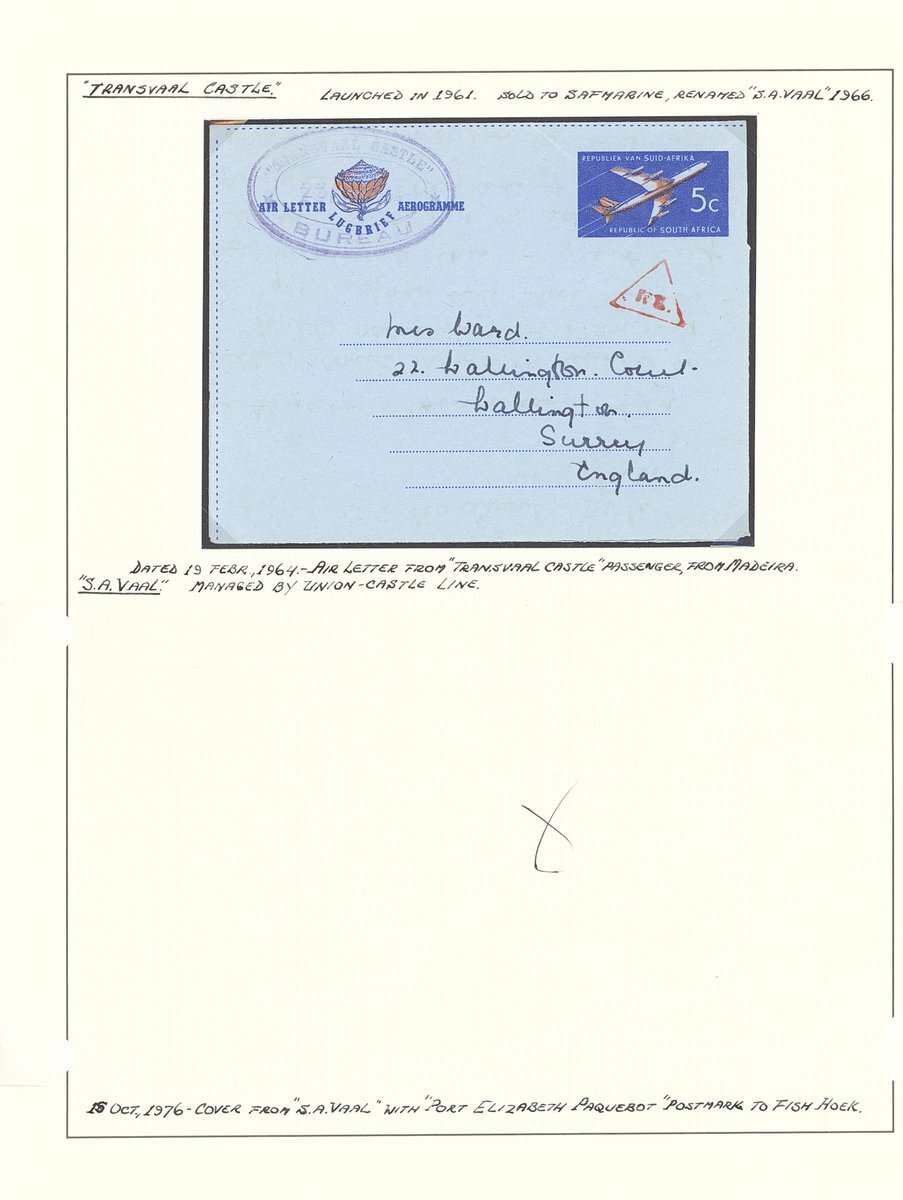 "TRANSVAAL CASTLE." LAUNCHED IN 1961. SOLD TO SAFMARINE, RENAMED "S.A. VAAL" 1966.
"TRANSVAAL CASTLE"
AIR LETTER LUGBRIEF AEROGRAMME
BUREAU
REPUBLIEK VAN SUID-AFRIKA
5c
REPUBLIC OF SOUTH AFRICA
Mrs Ward.
22. Wallington. Court.
Wallington.
Surrey
England.
DATED 19 FEBR., 1964. - AIR LETTER FROM "TRANSVAAL CASTLE" PASSENGER, FROM MADEIRA.
"S.A. VAAL." MANAGED BY UNION-CASTLE LINE.
15 OCT., 1976 - COVER FROM "S.A. VAAL" WITH "PORT ELIZABETH PAQUEBOT" POSTMARK TO FISH HOEK.